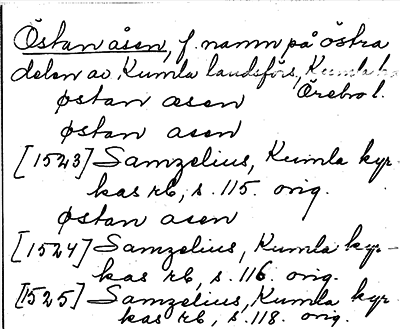 Östan åsen, f. namn på östra
delen av Kumla landsförs, Kumla
Örebro l.
østan æsen
østan asen
[1523] Samzelius, Kumla kyr-
kas rb, s. 115. orig.
østan asen
[1524] Samzelius, Kumla kyr-
kas rb, s. 116. orig.
[1525] Samzelius, Kumla kyr-
kas rb, s. 118. orig.